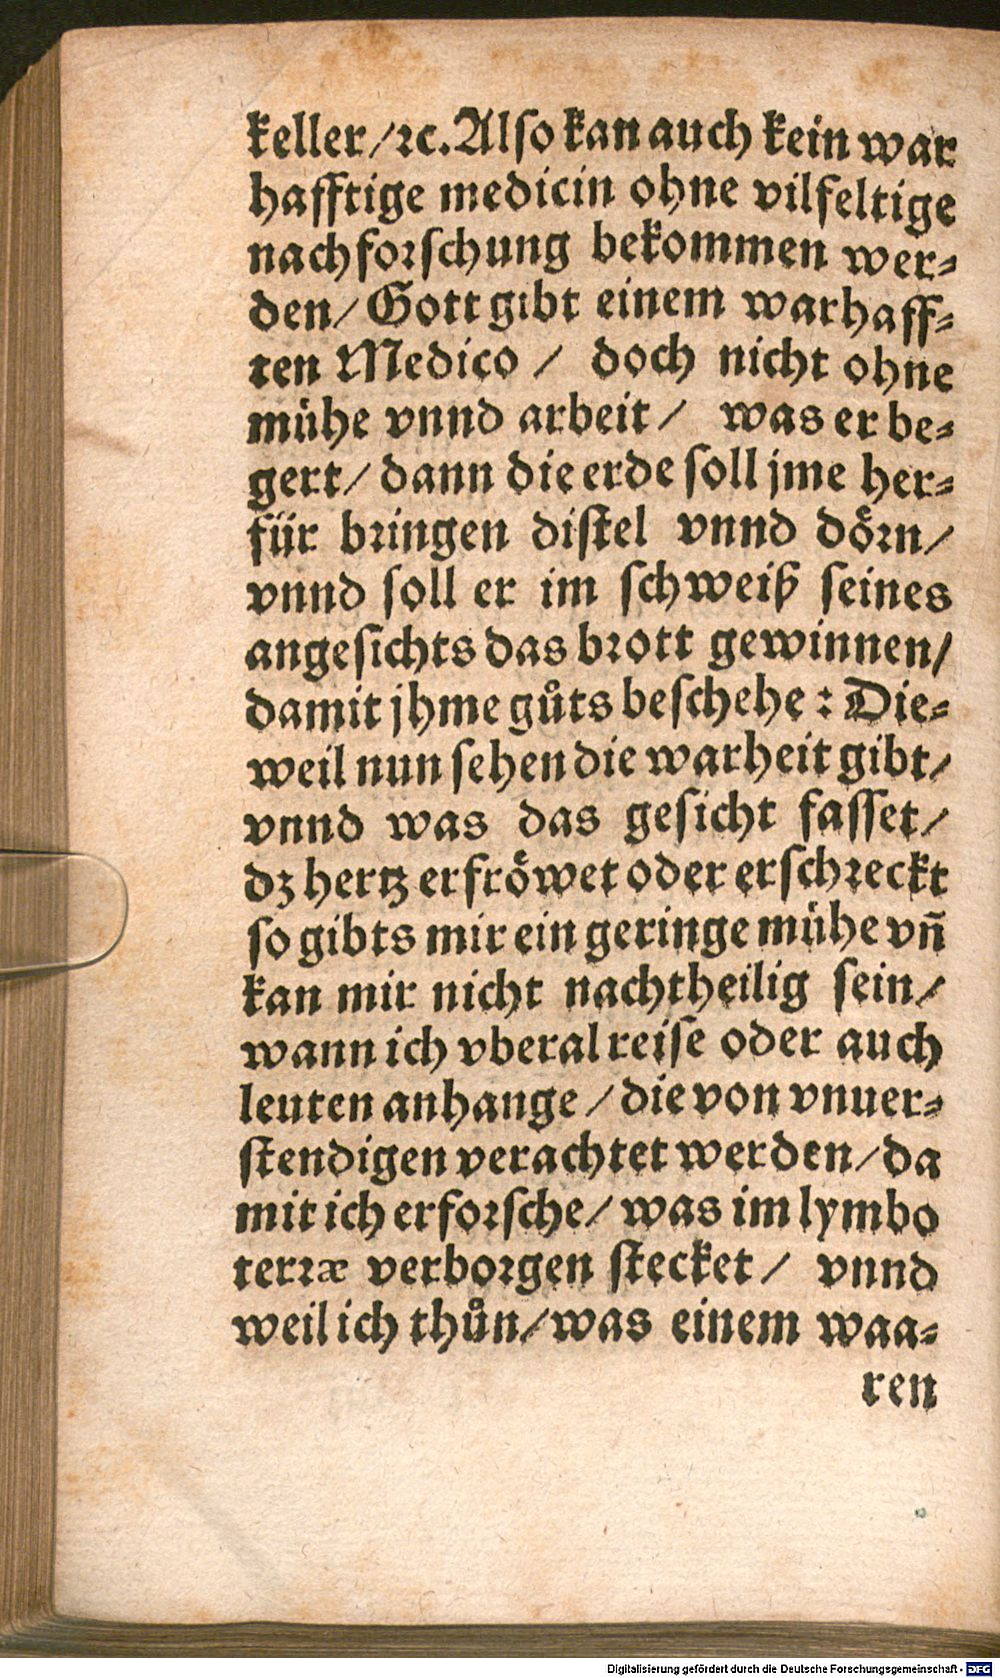 keller/ ꝛc. Also kan auch kein war
hafftige medicin ohne vilfeltige
nachforschung bekommen wer⸗
den/ Gott gibt einem warhaff⸗
ten Medico / doch nicht ohne
mühe vnnd arbeit / was er be⸗
gert/ dann die erde soll jme her⸗
für bringen distel vnnd doͤrn/
vnnd soll er im schweiß seines
angesichts das brott gewinnen/
damit jhme guͦts beschehe: Die⸗
weil nun sehen die warheit gibt/
vnnd was das gesicht fasset/
dz hertz erfroͤwet oder erschreckt
so gibts mir ein geringe mühe vn̄
kan mir nicht nachtheilig sein/
wann ich vberal reise oder auch
leuten anhange / die von vnuer⸗
stendigen verachtet werden/ da
mit ich erforsche/ was im lymbo
terræ verborgen stecket / vnnd
weil ich thuͦn/ was einem waa⸗
ren
Digitalisierung gefördert durch die Deutsche Forschungsgemeinschaft - DFG